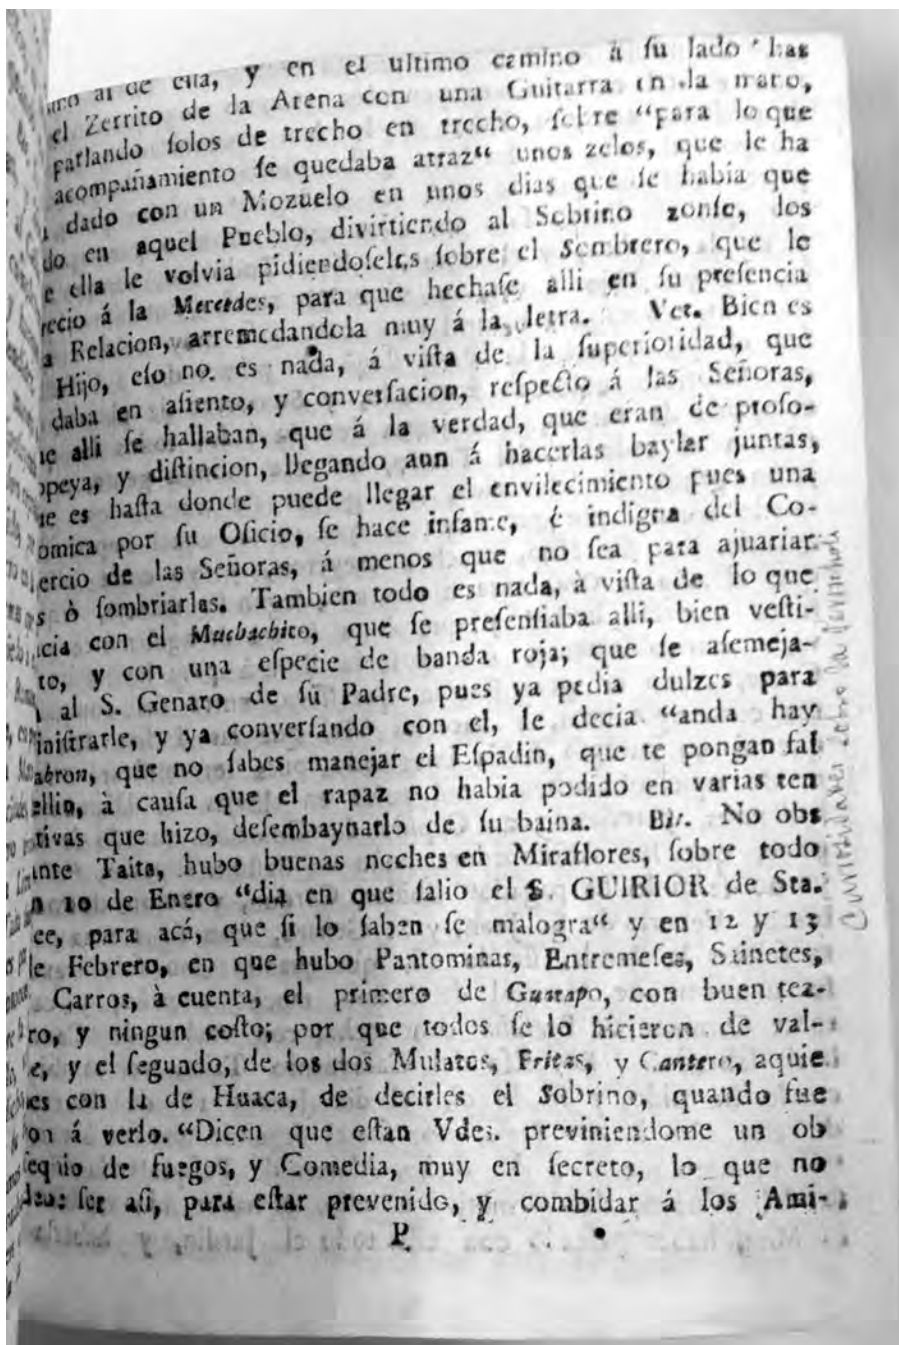 y en el ultimo camino à ſu lado has
el Zerrito de la Arena con una Guitarra en la mano,
parlando ſolos de trecho en trecho, ſobre “para lo que
acompañamiento ſe quedaba atraz“ unos zelos, que le ha
dado con un Mozuelo en unos dias que ſe habia que
do en aquel Pueblo, divirtiendo al Sobrino zonſe, los
e ella le volvia pidiendoſelos ſobre el Sombrero, que le
recio á la Mercedes, para que hechaſe alli en ſu preſencia
a Relacion, arremedandola muy á la letra. Vet. Bien es
Hijo, eſo no es nada, á viſta de la ſuperioridad, que
daba en aſiento, y converſacion, reſpecto á las Señoras,
ue alli ſe hallaban, que á la verdad, que eran de proſo-
opeya, y diſtincion, llegando aun á hacerlas baylar juntas,
ue es haſta donde puede llegar el envilecimiento pues una
omica por ſu Oficio, ſe hace infame, é indigna del Co-
ercio de las Señoras, á menos que no ſea para ajuariar
s ò ſombriarlas. Tambien todo es nada, à viſta de lo que
icia con el Muchachito, que ſe preſenſiaba alli, bien veſti-
to, y con una eſpecie de banda roja; que ſe aſemeja-
al S. Genaro de ſu Padre, pues ya pedia dulzes para
iniſtrarle, y ya converſando con el, le decia “anda hay
abron, que no ſabes manejar el Eſpadin, que te pongan fal
ellin, à cauſa que el rapaz no habia podido en varias ten
tivas que hizo, deſembaynarlo de ſu baina. Bir. No obs
ante Taita, hubo buenas noches en Miraflores, ſobre todo
n 10 de Enero “dia en que ſalio el S. GUIRIOR de Sta.
ee, para acá, que ſi lo ſaben ſe malogra“ y en 12 y 13
le Febrero, en que hubo Pantominas, Entremeſes, Sainetes,
Carros, à cuenta, el primero de Guarapo, con buen tea-
ro, y ningun coſto; por que todos ſe lo hicieron de val-
e, y el ſegundo, de los dos Mulatos, Fritas, y Cantero, aquie
nes con la de Huaca, de decirles el Sobrino, quando fue
on á verlo. “Dicen que eſtan Vdes. previniendome un ob
ſequio de fuegos, y Comedia, muy en ſecreto, lo que no
ſer aſi, para eſtar prevenido, y combidar á los Ami-
P